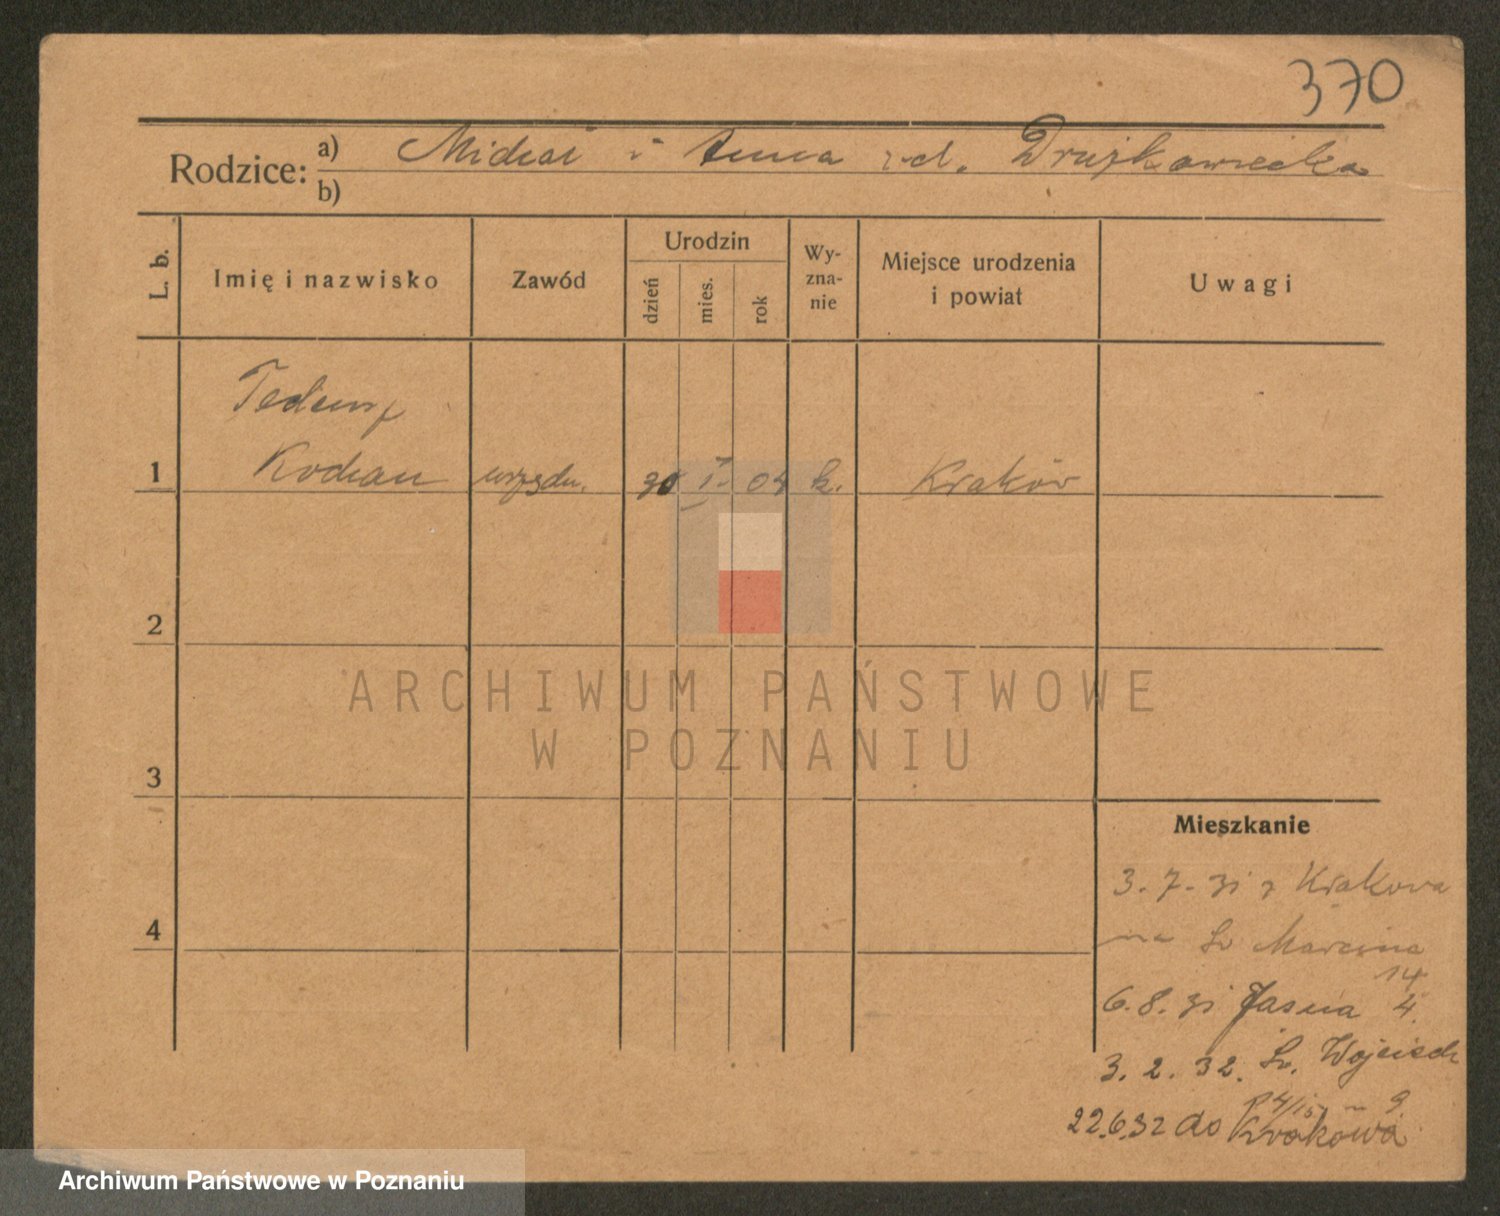 370
Rodzice: a) Michał i Anna z d. Drużkowiecka
b)
L. b.
Imię i nazwisko
Zawód
Urodzin
dzień
mies.
rok
Wy-
zna-
nie
Miejsce urodzenia
i powiat
Uwagi
Tadeusz
1 Kochan urzędn. 30 I. 04 k. Kraków
2
ARCHIWUM PAŃSTWOWE
W POZNANIU
3
Mieszkanie
3. 7. 31 z Krakowa
4
na Św Marcina
14
6. 8. 31 Jasna 4.
3. 2. 32. Św. Wojciech
9
22.6.32 do Krakowa
Archiwum Państwowe w Poznaniu